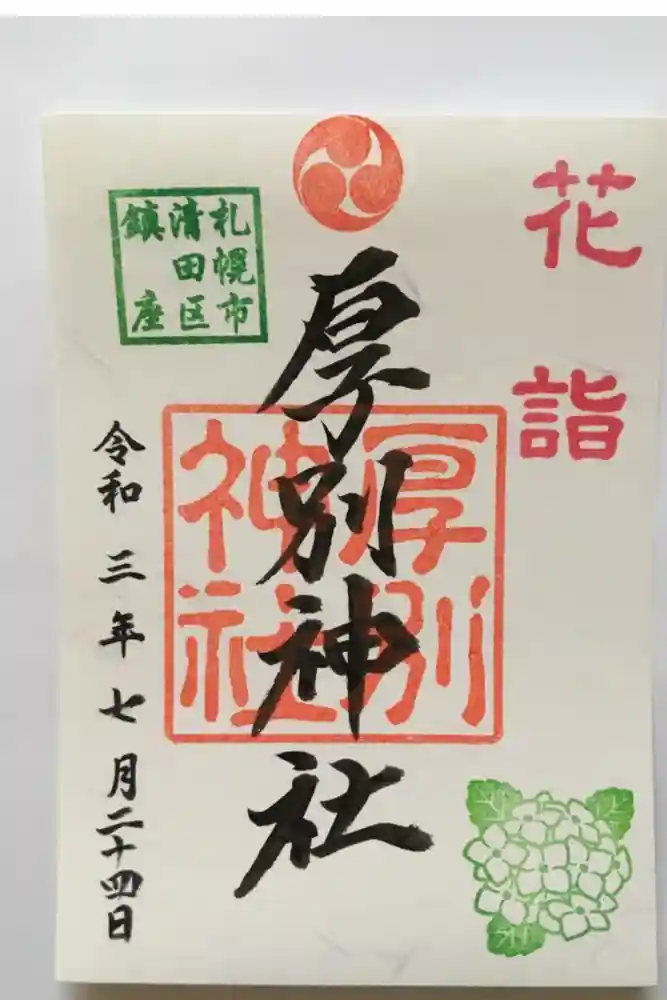 花詣
厚別神社
厚別
神社
札幌市
清田区
鎮座
令和三年七月二十四日